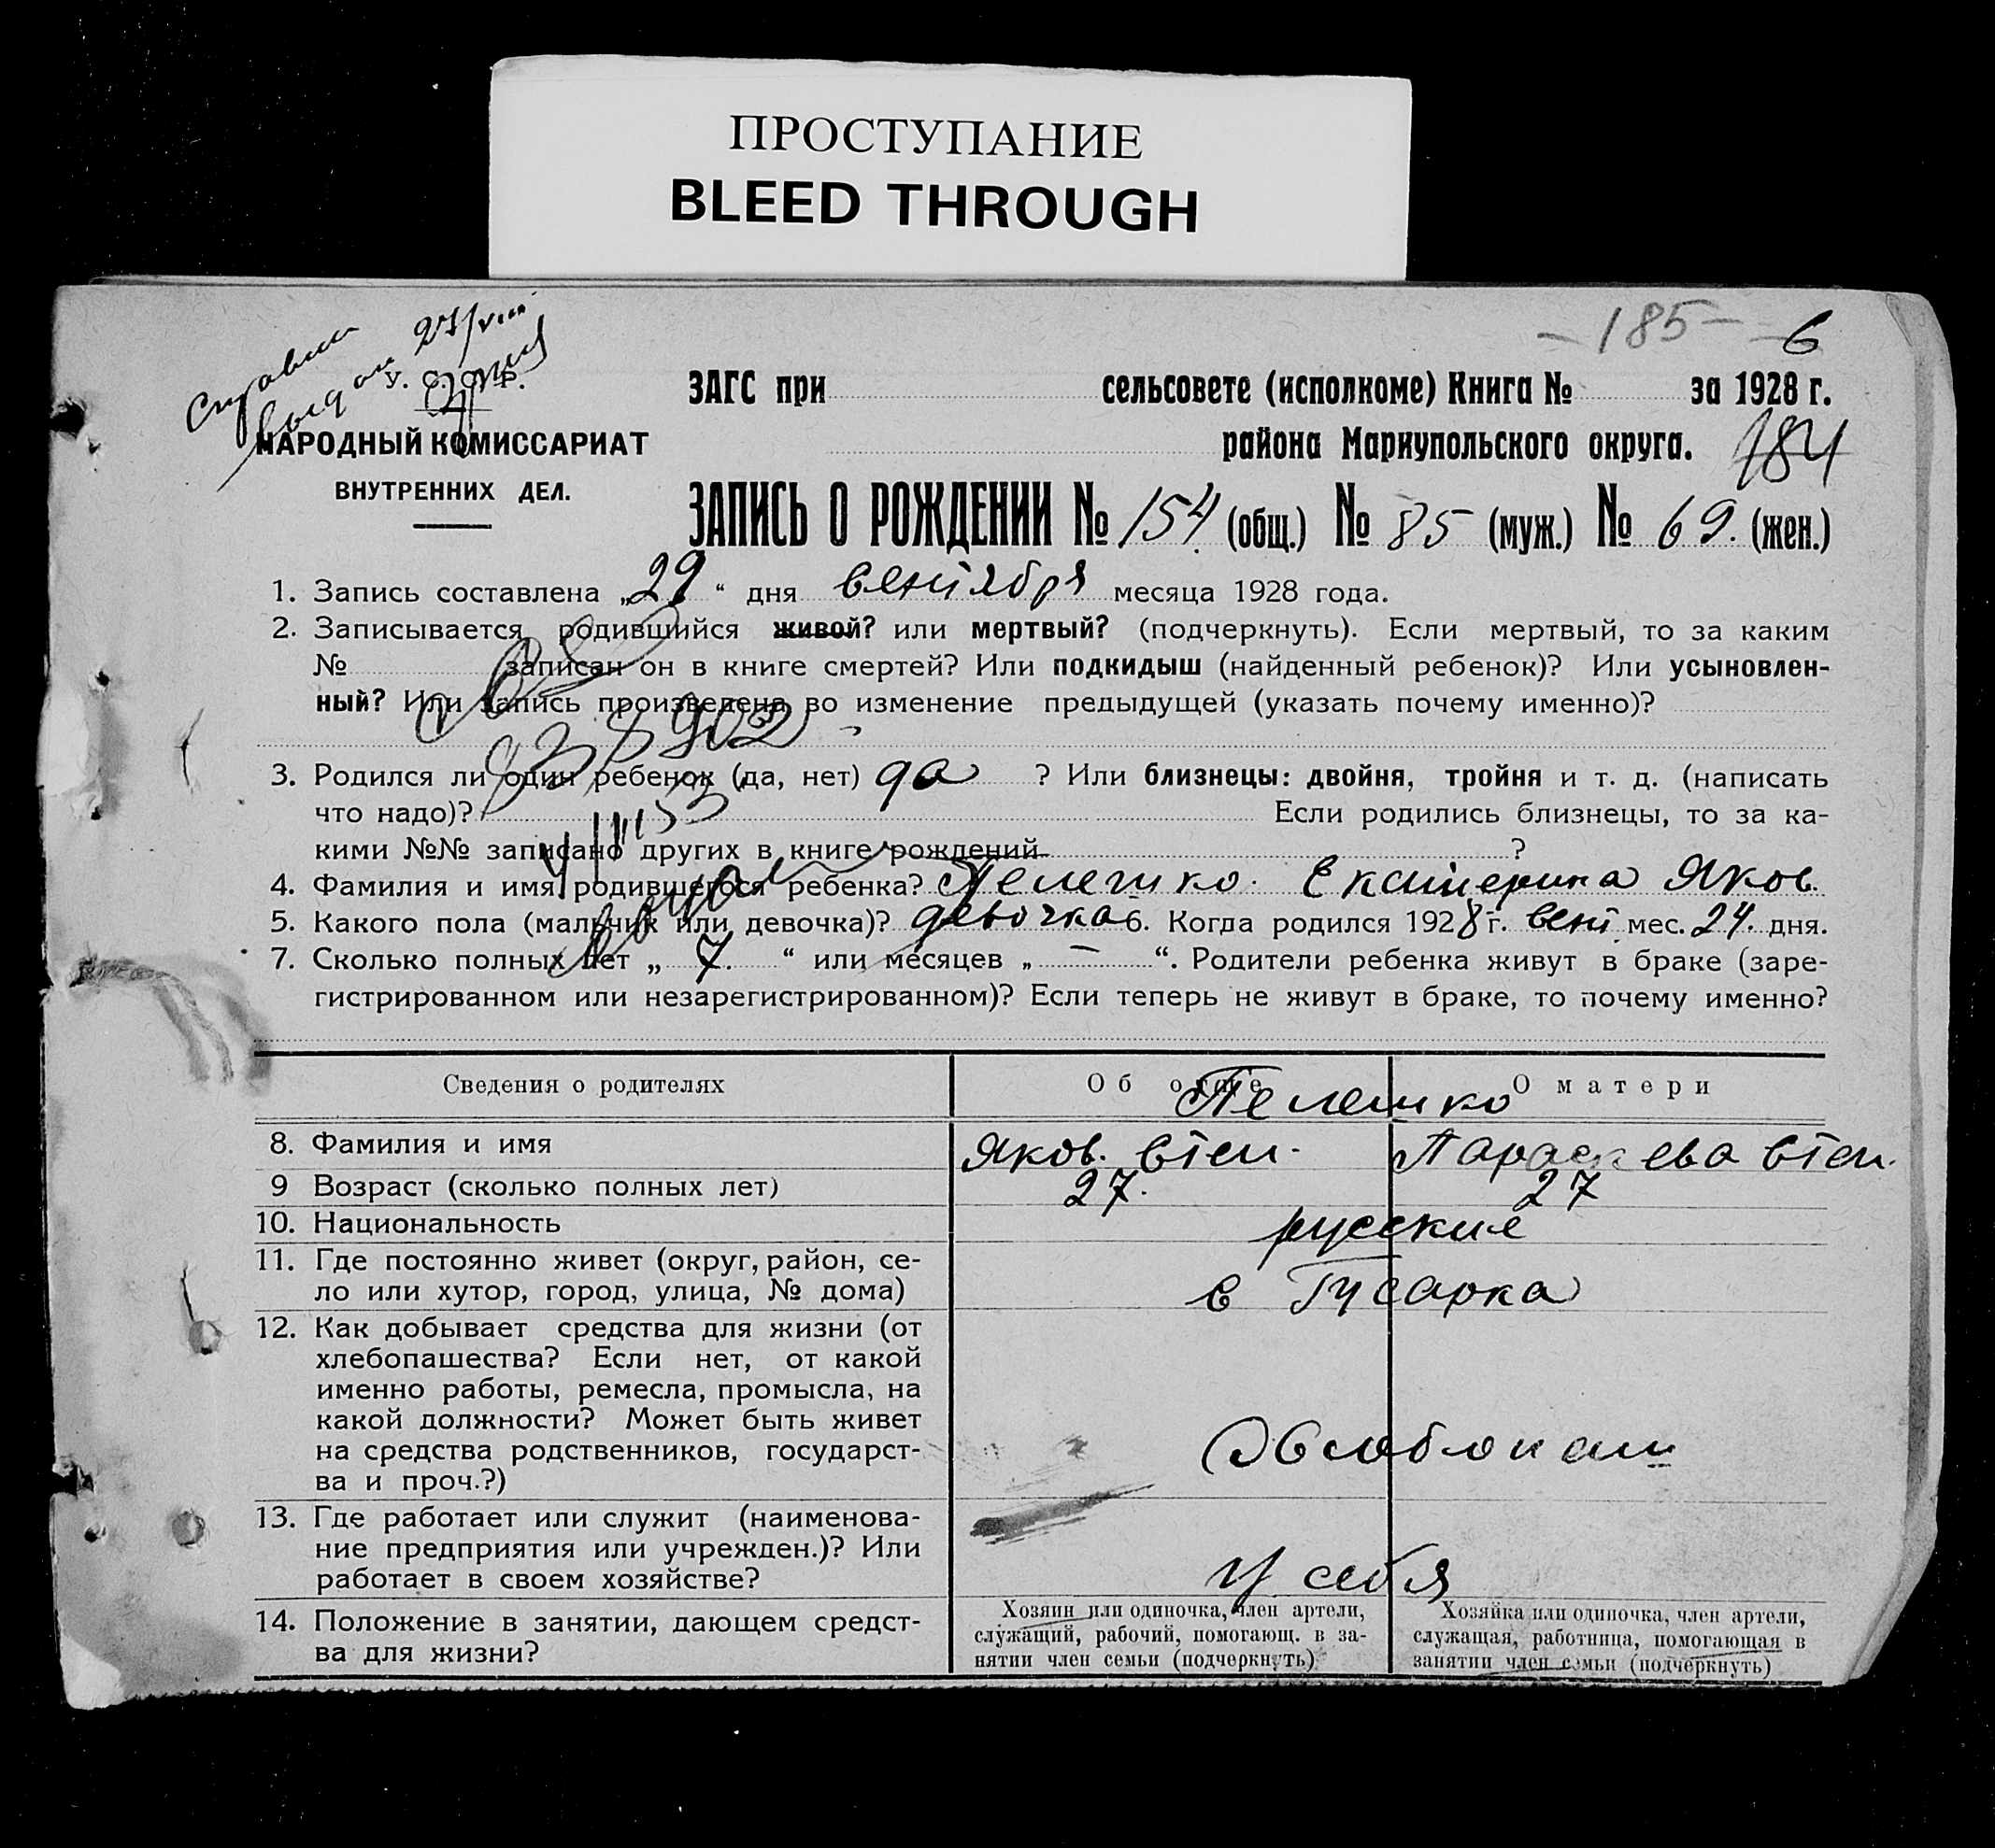 ПРОСТУПАНИЕ
BLEED THROUGH
-185- 6
Справка 27/VIII
У. С. С. Р.
НАРОДНЫЙ КОМИССАРИАТ
ВНУТРЕННИХ ДЕЛ.
ЗАГС при сельсовете (исполкоме) Книга № за 1928 г.
района Мариупольского округа. 184
ЗАПИСЬ О РОЖДЕНИИ № 154 (общ.) № 85 (муж.) № 69. (жен.)
1. Запись составлена „29“ дня сентября месяца 1928 года.
2. Записывается родившийся живой? или мертвый? (подчеркнуть). Если мертвый, то за каким
№ записан он в книге смертей? Или подкидыш (найденный ребенок)? Или усыновлен-
ный? Или запись произведена во изменение предыдущей (указать почему именно)?
3. Родился ли один ребенок (да, нет) да ? Или близнецы: двойня, тройня и т. д. (написать
что надо)? Если родились близнецы, то за ка-
кими №№ записано других в книге рождений ?
4. Фамилия и имя родившегося ребенка? Пелешко Екатерина Яков.
5. Какого пола (мальчик или девочка)? девочка 6. Когда родился 1928 г. сент. мес. 24. дня.
7. Сколько полных лет „ 7. “ или месяцев „ – “. Родители ребенка живут в браке (заре-
гистрированном или незарегистрированном)? Если теперь не живут в браке, то почему именно?
Сведения о родителях Об отце О матери
Пелешко
8. Фамилия и имя Яков. Степ. Параскева Степ.
9 Возраст (сколько полных лет) 27. 27
10. Национальность русские
11. Где постоянно живет (округ, район, се-
ло или хутор, город, улица, № дома) с Гусарка
12. Как добывает средства для жизни (от
хлебопашества? Если нет, от какой
именно работы, ремесла, промысла, на
какой должности? Может быть живет
на средства родственников, государст-
ва и проч.?)
13. Где работает или служит (наименова-
ние предприятия или учрежден.)? Или
работает в своем хозяйстве? У себя
14. Положение в занятии, дающем средст-
ва для жизни?
Хозяин или одиночка, член артели,
служащий, рабочий, помогающ. в за-
нятии член семьи (подчеркнуть)
Хозяйка или одиночка, член артели,
служащая, работница, помогающая в
занятии член семьи (подчеркнуть)